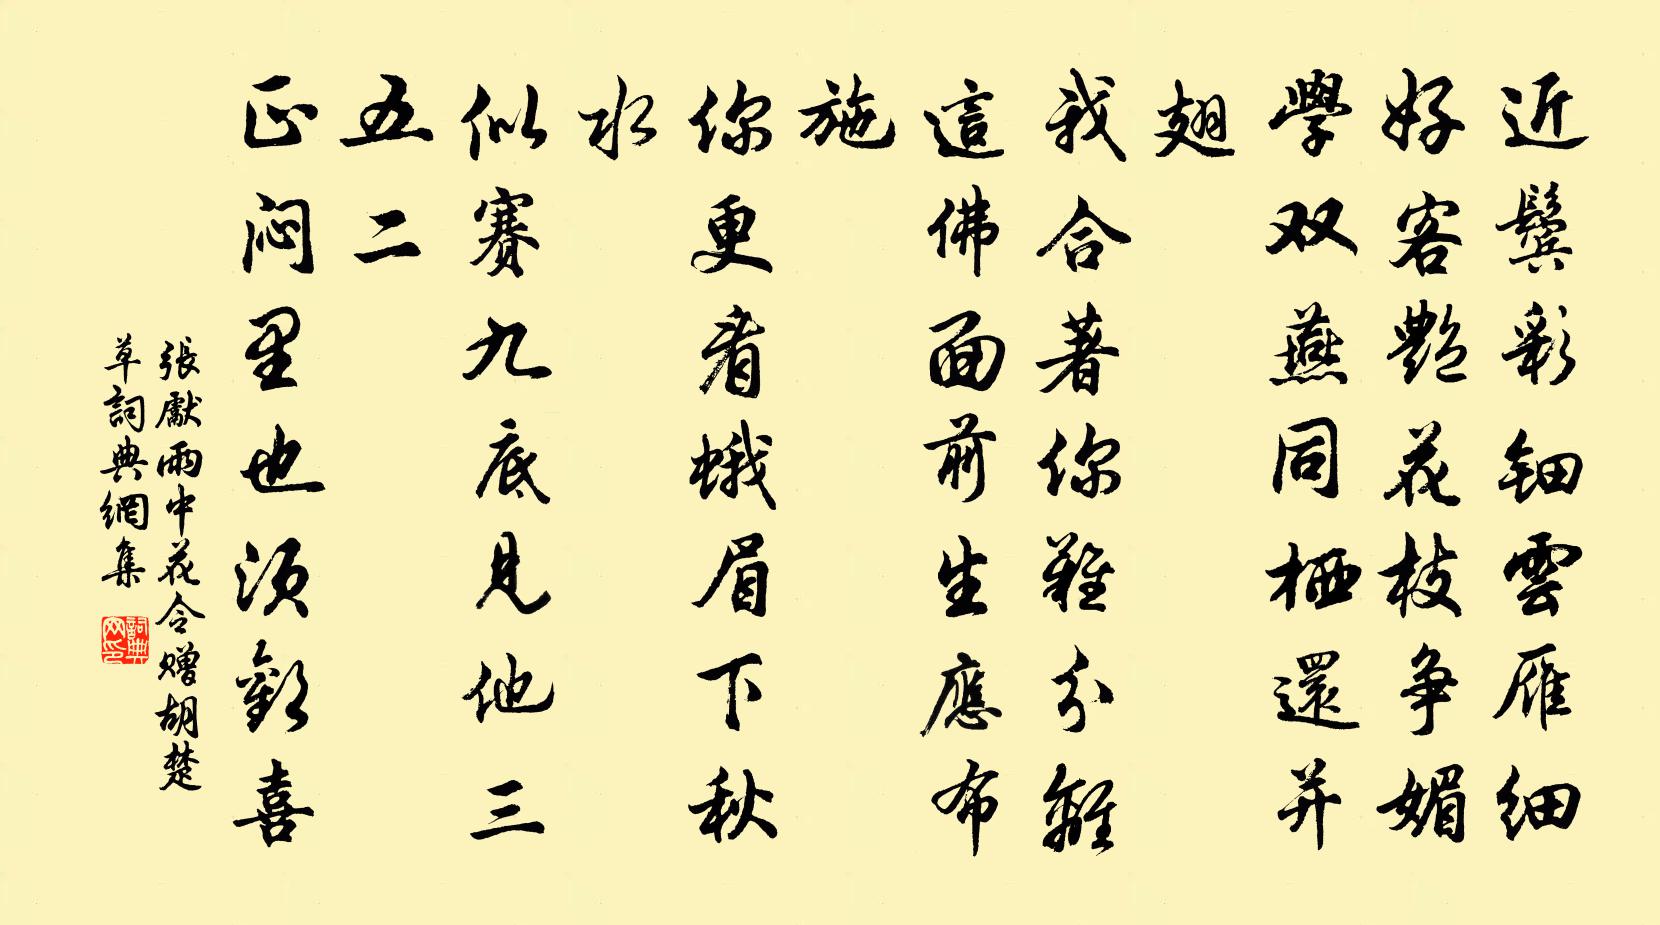 近鬓彩钿雲雁细
好客艷花枝争媚
學双燕同栖還并
翅
我合著你難分離
這佛面前生應布
施
你更看蛾眉下秋
水
似賽九底見他三
五二
正闷里也須歡喜
張獻雨中花令赠胡楚
草詞典網集
詞典网印